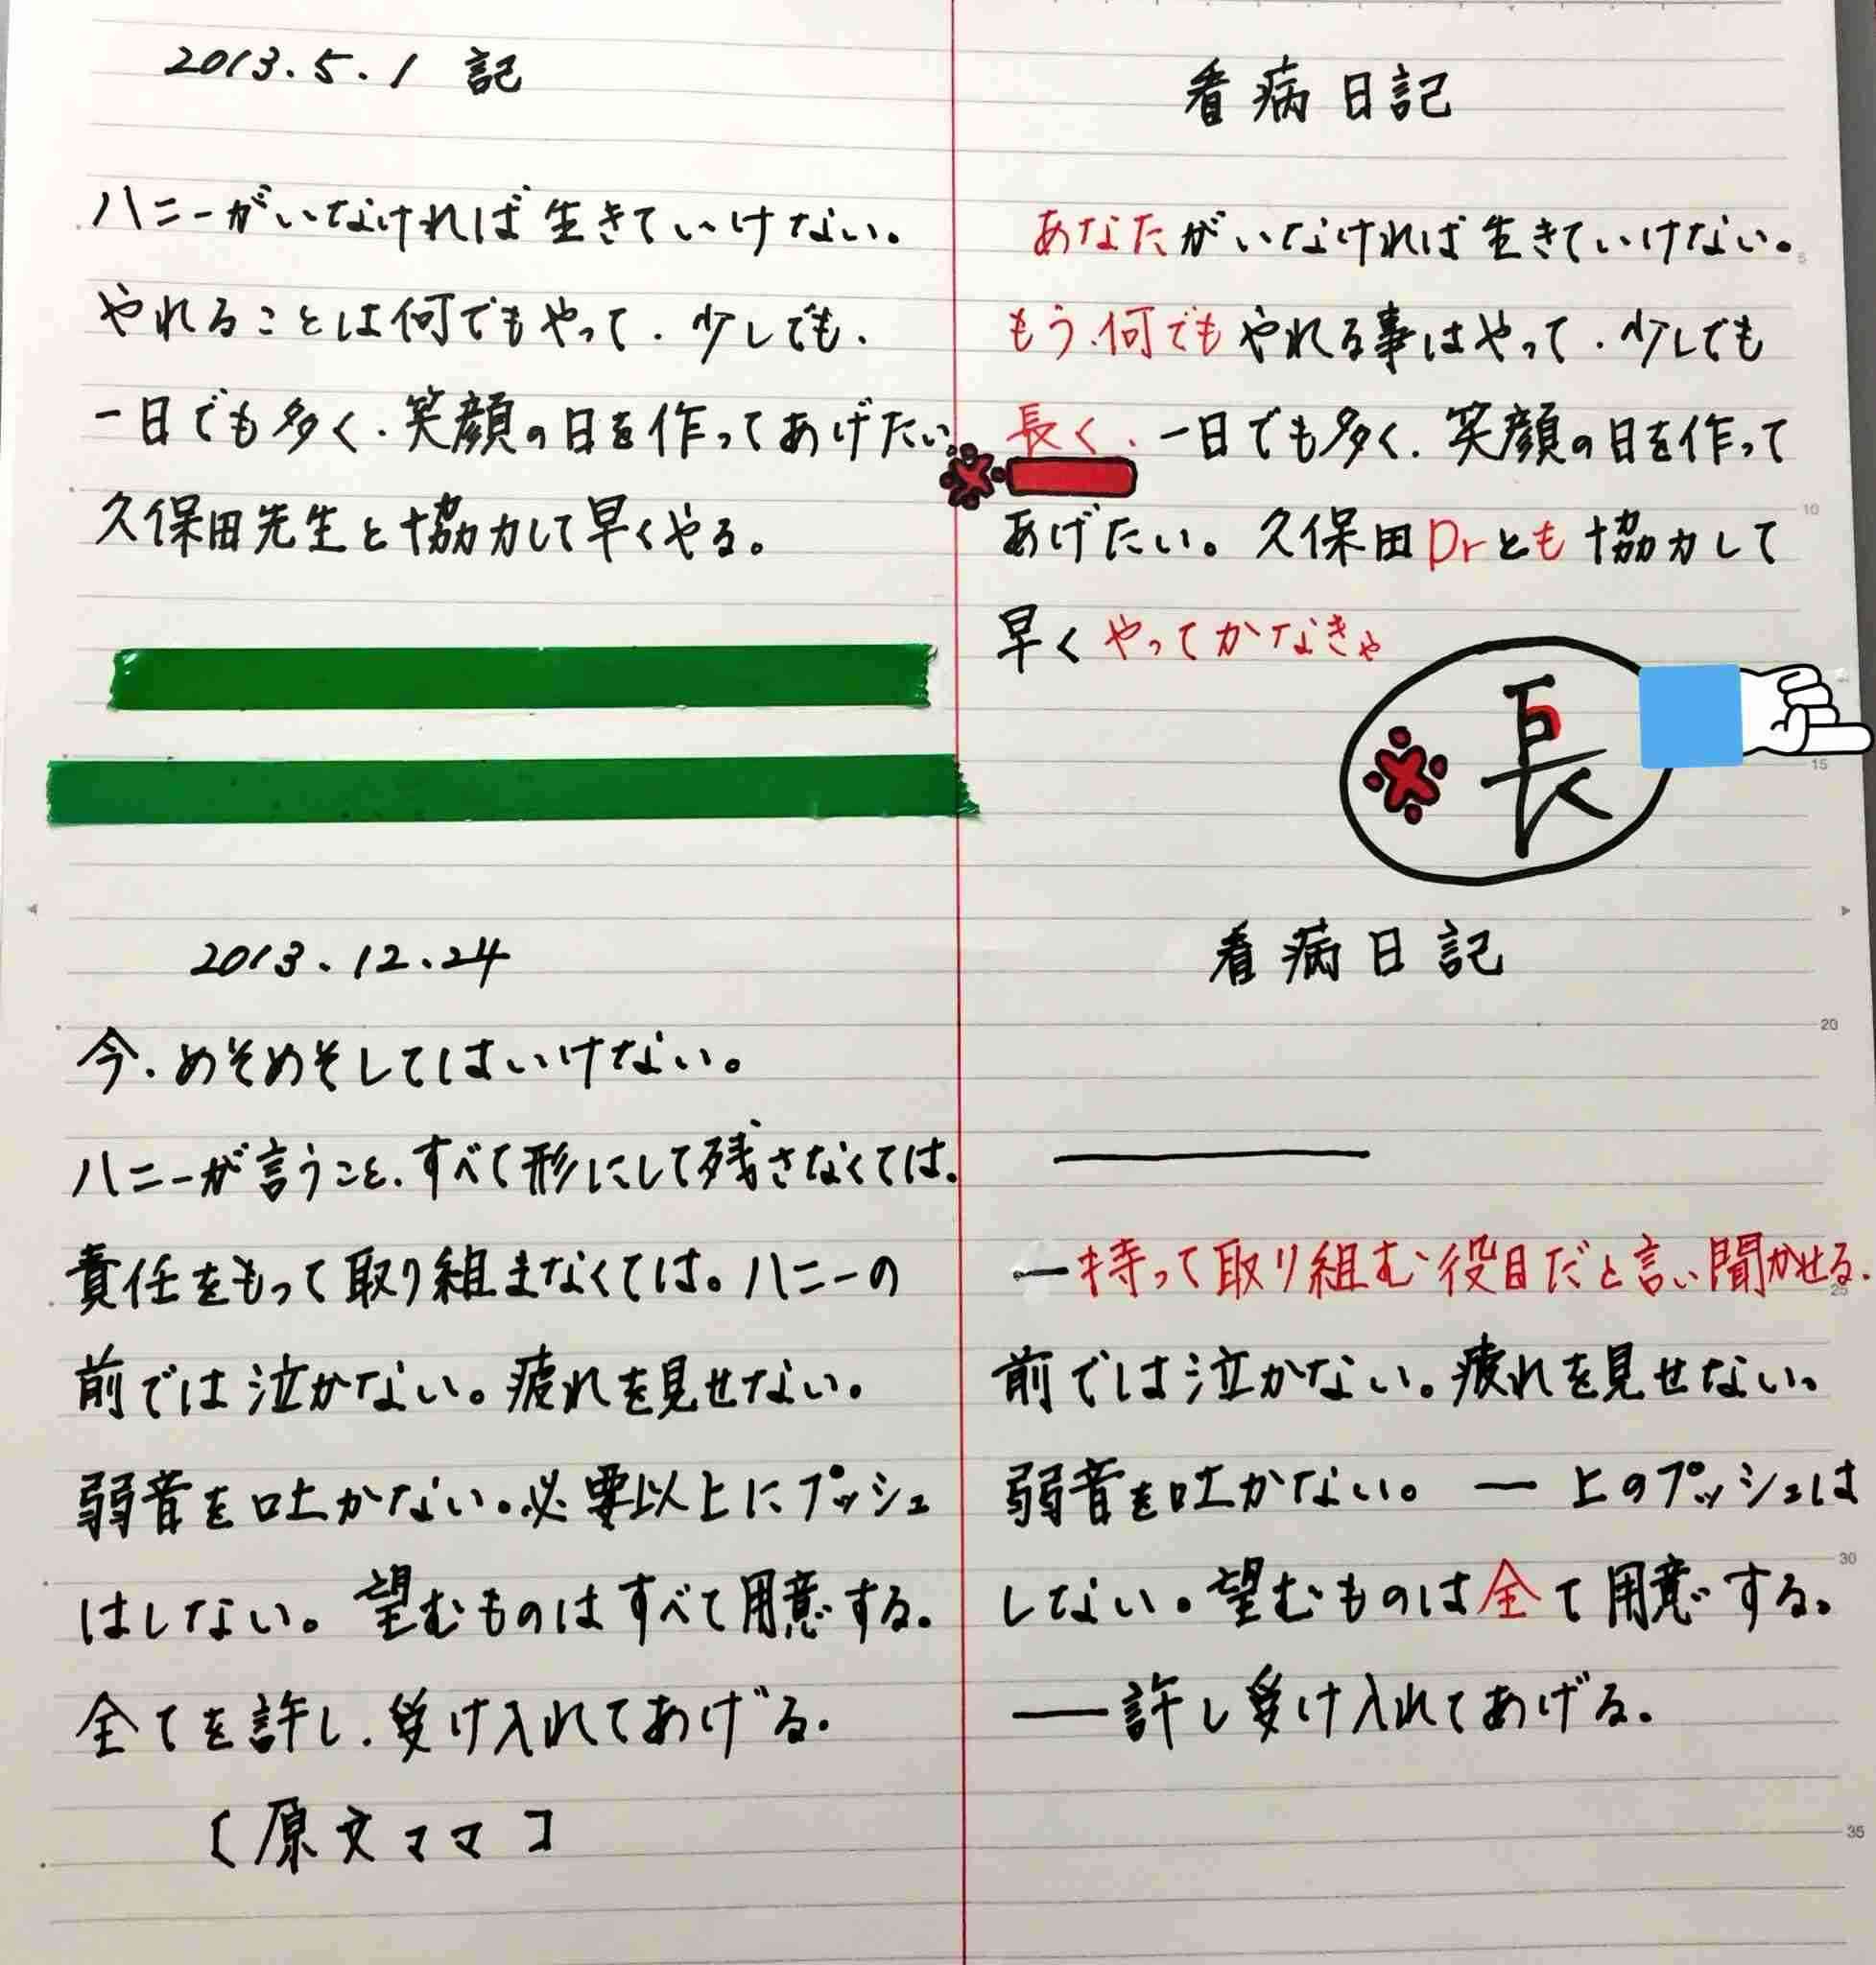 2013.5.1 記
ハニーがいなければ生きていけない。
やれることは何でもやって、少しでも、
一日でも多く、笑顔の日を作ってあげたい。
久保田先生と協力して早くやる。
看病日記
あなたがいなければ生きていけない。
もう、何でもやれる事はやって、少しでも
長く、一日でも多く、笑顔の日を作って
あげたい。久保田Drとも協力して
早くやってかなきゃ
※長
2013.12.24
今、めそめそしてはいけない。
ハニーが言うこと、すべて形にして残さなくては。
責任をもって取り組まなくては。ハニーの
前では泣かない。疲れを見せない。
弱音を吐かない。必要以上にプッシュ
はしない。望むものはすべて用意する。
全てを許し、受け入れてあげる。
〔原文ママ〕
看病日記
―持って取り組む役目だと言い聞かせる。
前では泣かない。疲れを見せない。
弱音を吐かない。―上のプッシュは
しない。望むものは全て用意する。
―許し受け入れてあげる。
5
10
15
20
25
30
35